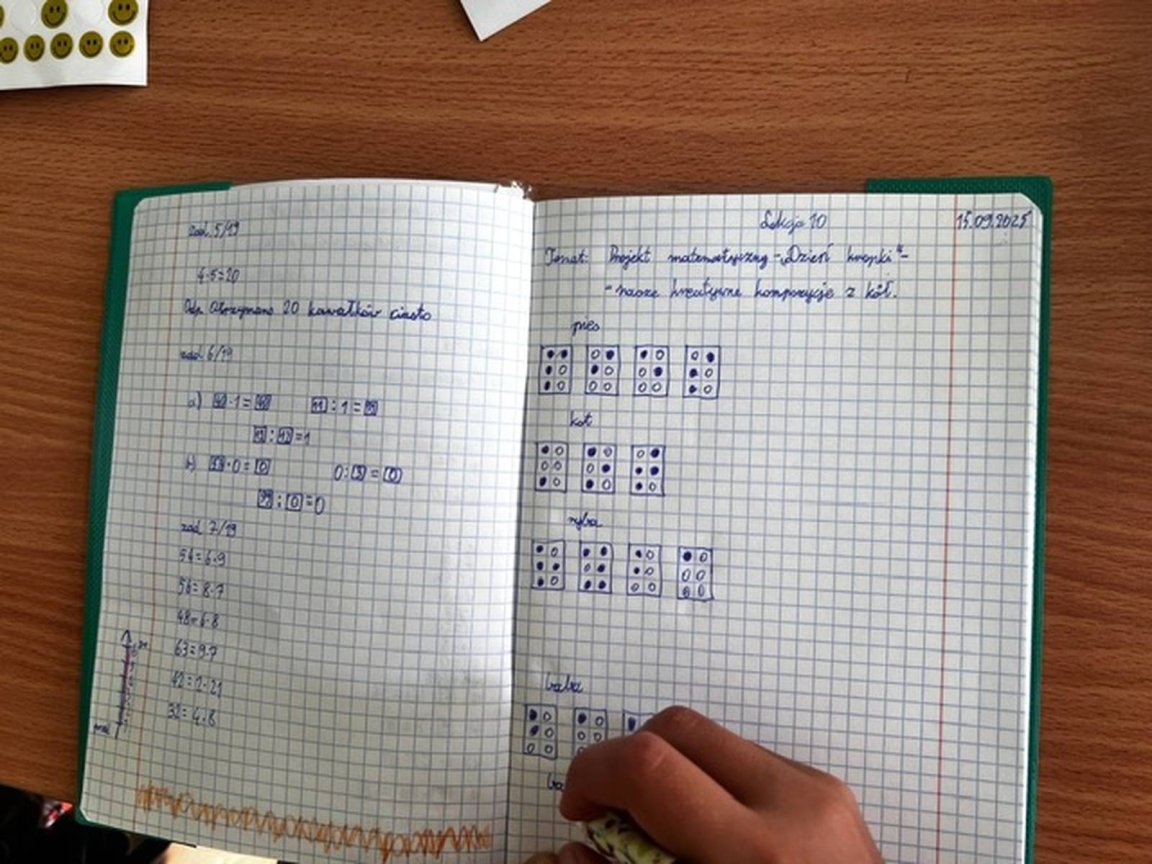 zad. 5/19
4·5=20
Odp. Otrzymano 20 kawałków ciasta
zad. 6/19
a)
:1=
:
=1
b)
·0=0
0:
=0
:0=0
zad. 7/19
54=6·9
56=8·7
48=6·8
63=9·7
42=2·21
32=4·8
Lekcja 10
15.09.2025
Temat: Projekt matematyczny - „Dzień kropki" -
- nasze kreatywne kompozycje z kół.
pies
kot
ryba
baba